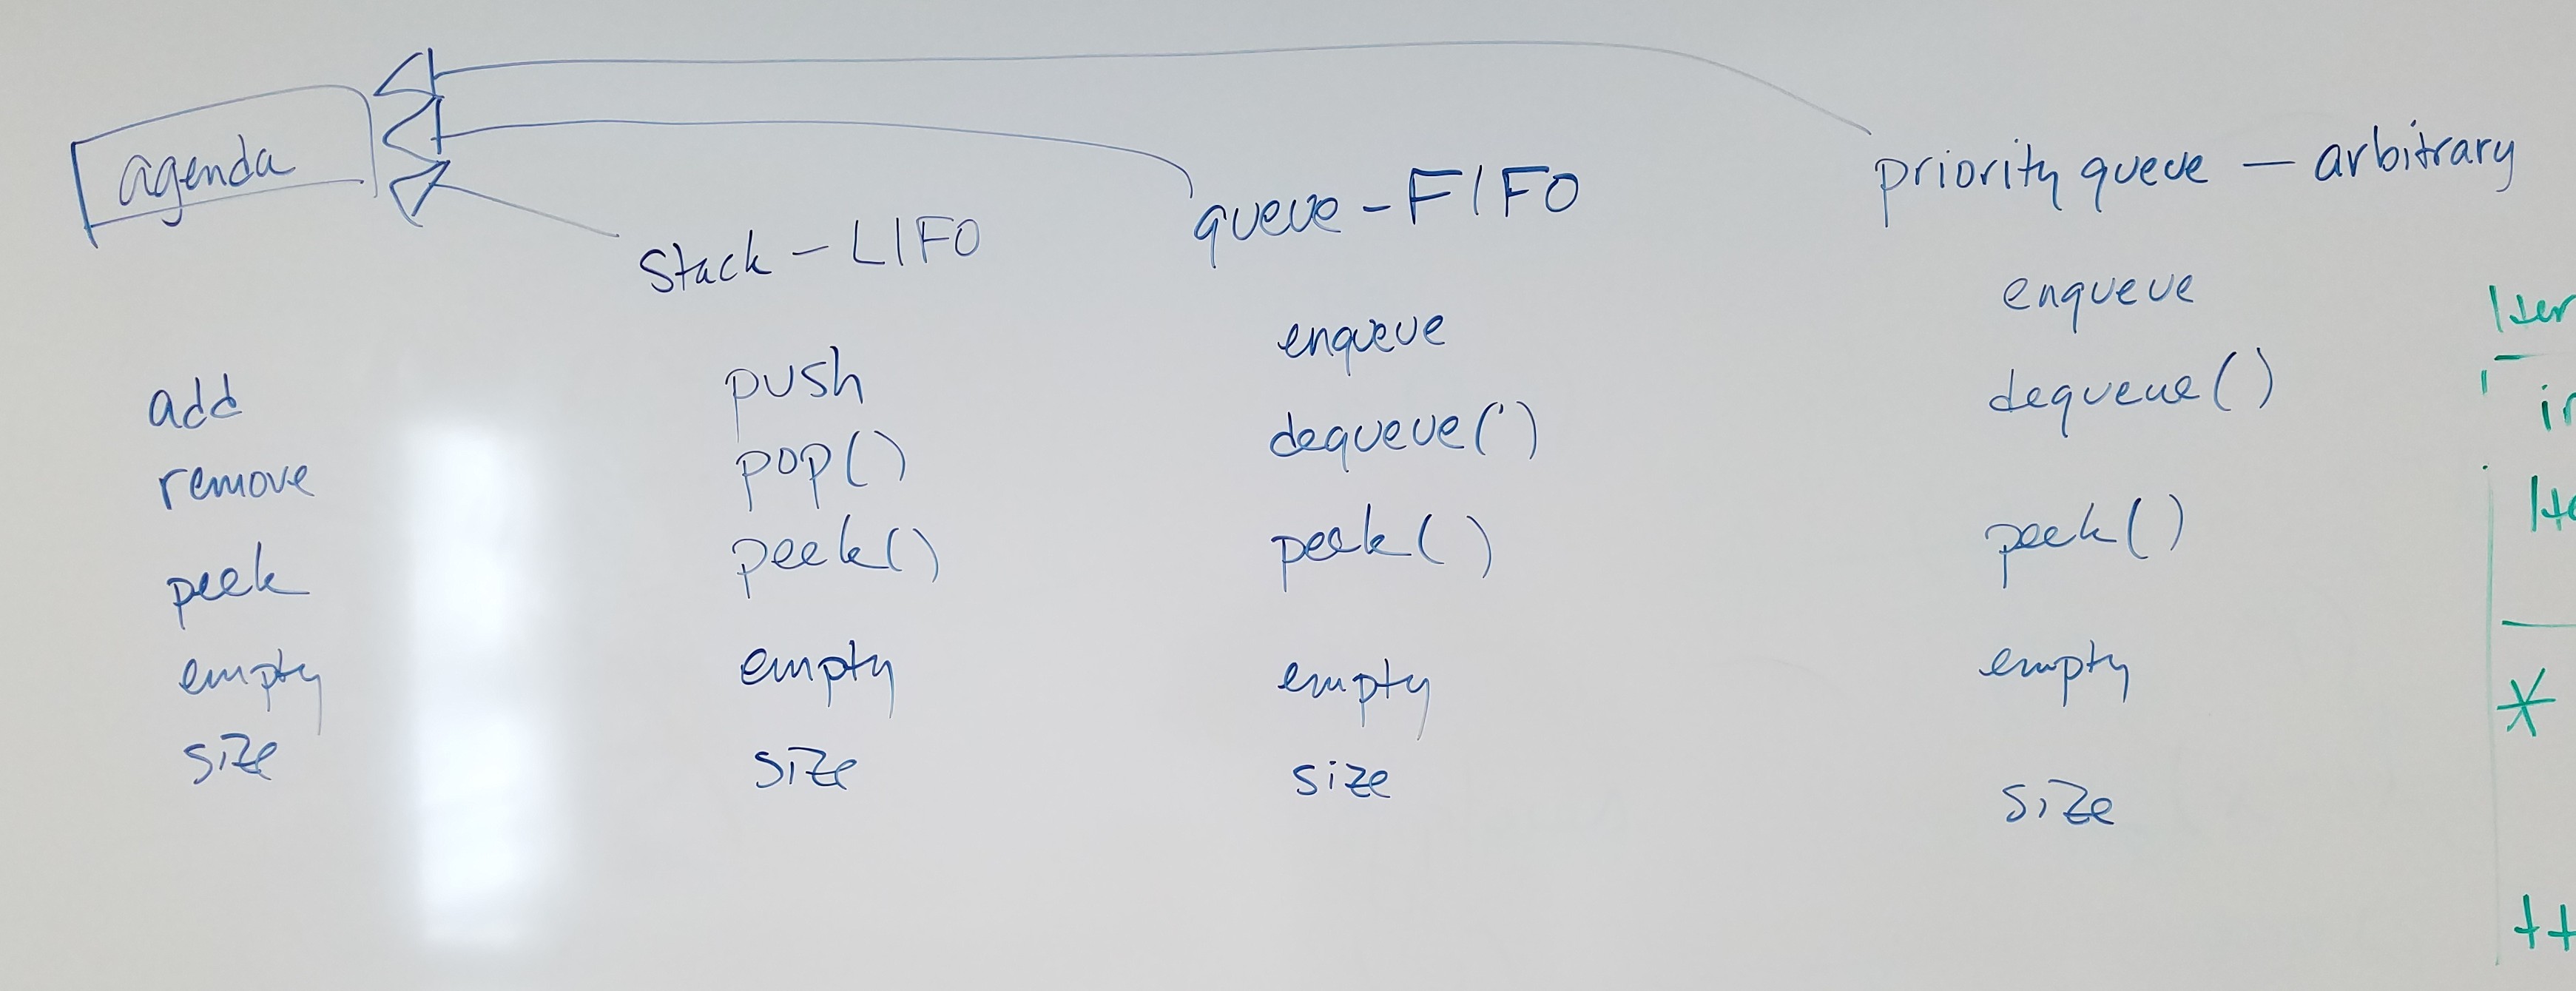 agenda
add
remove
peek
empty
size
Stack - LIFO
push
pop()
peek()
empty
size
queue - FIFO
enqueue
dequeue()
peek()
empty
size
priority queue - arbitrary
enqueue
dequeue()
peek()
empty
size
*
++